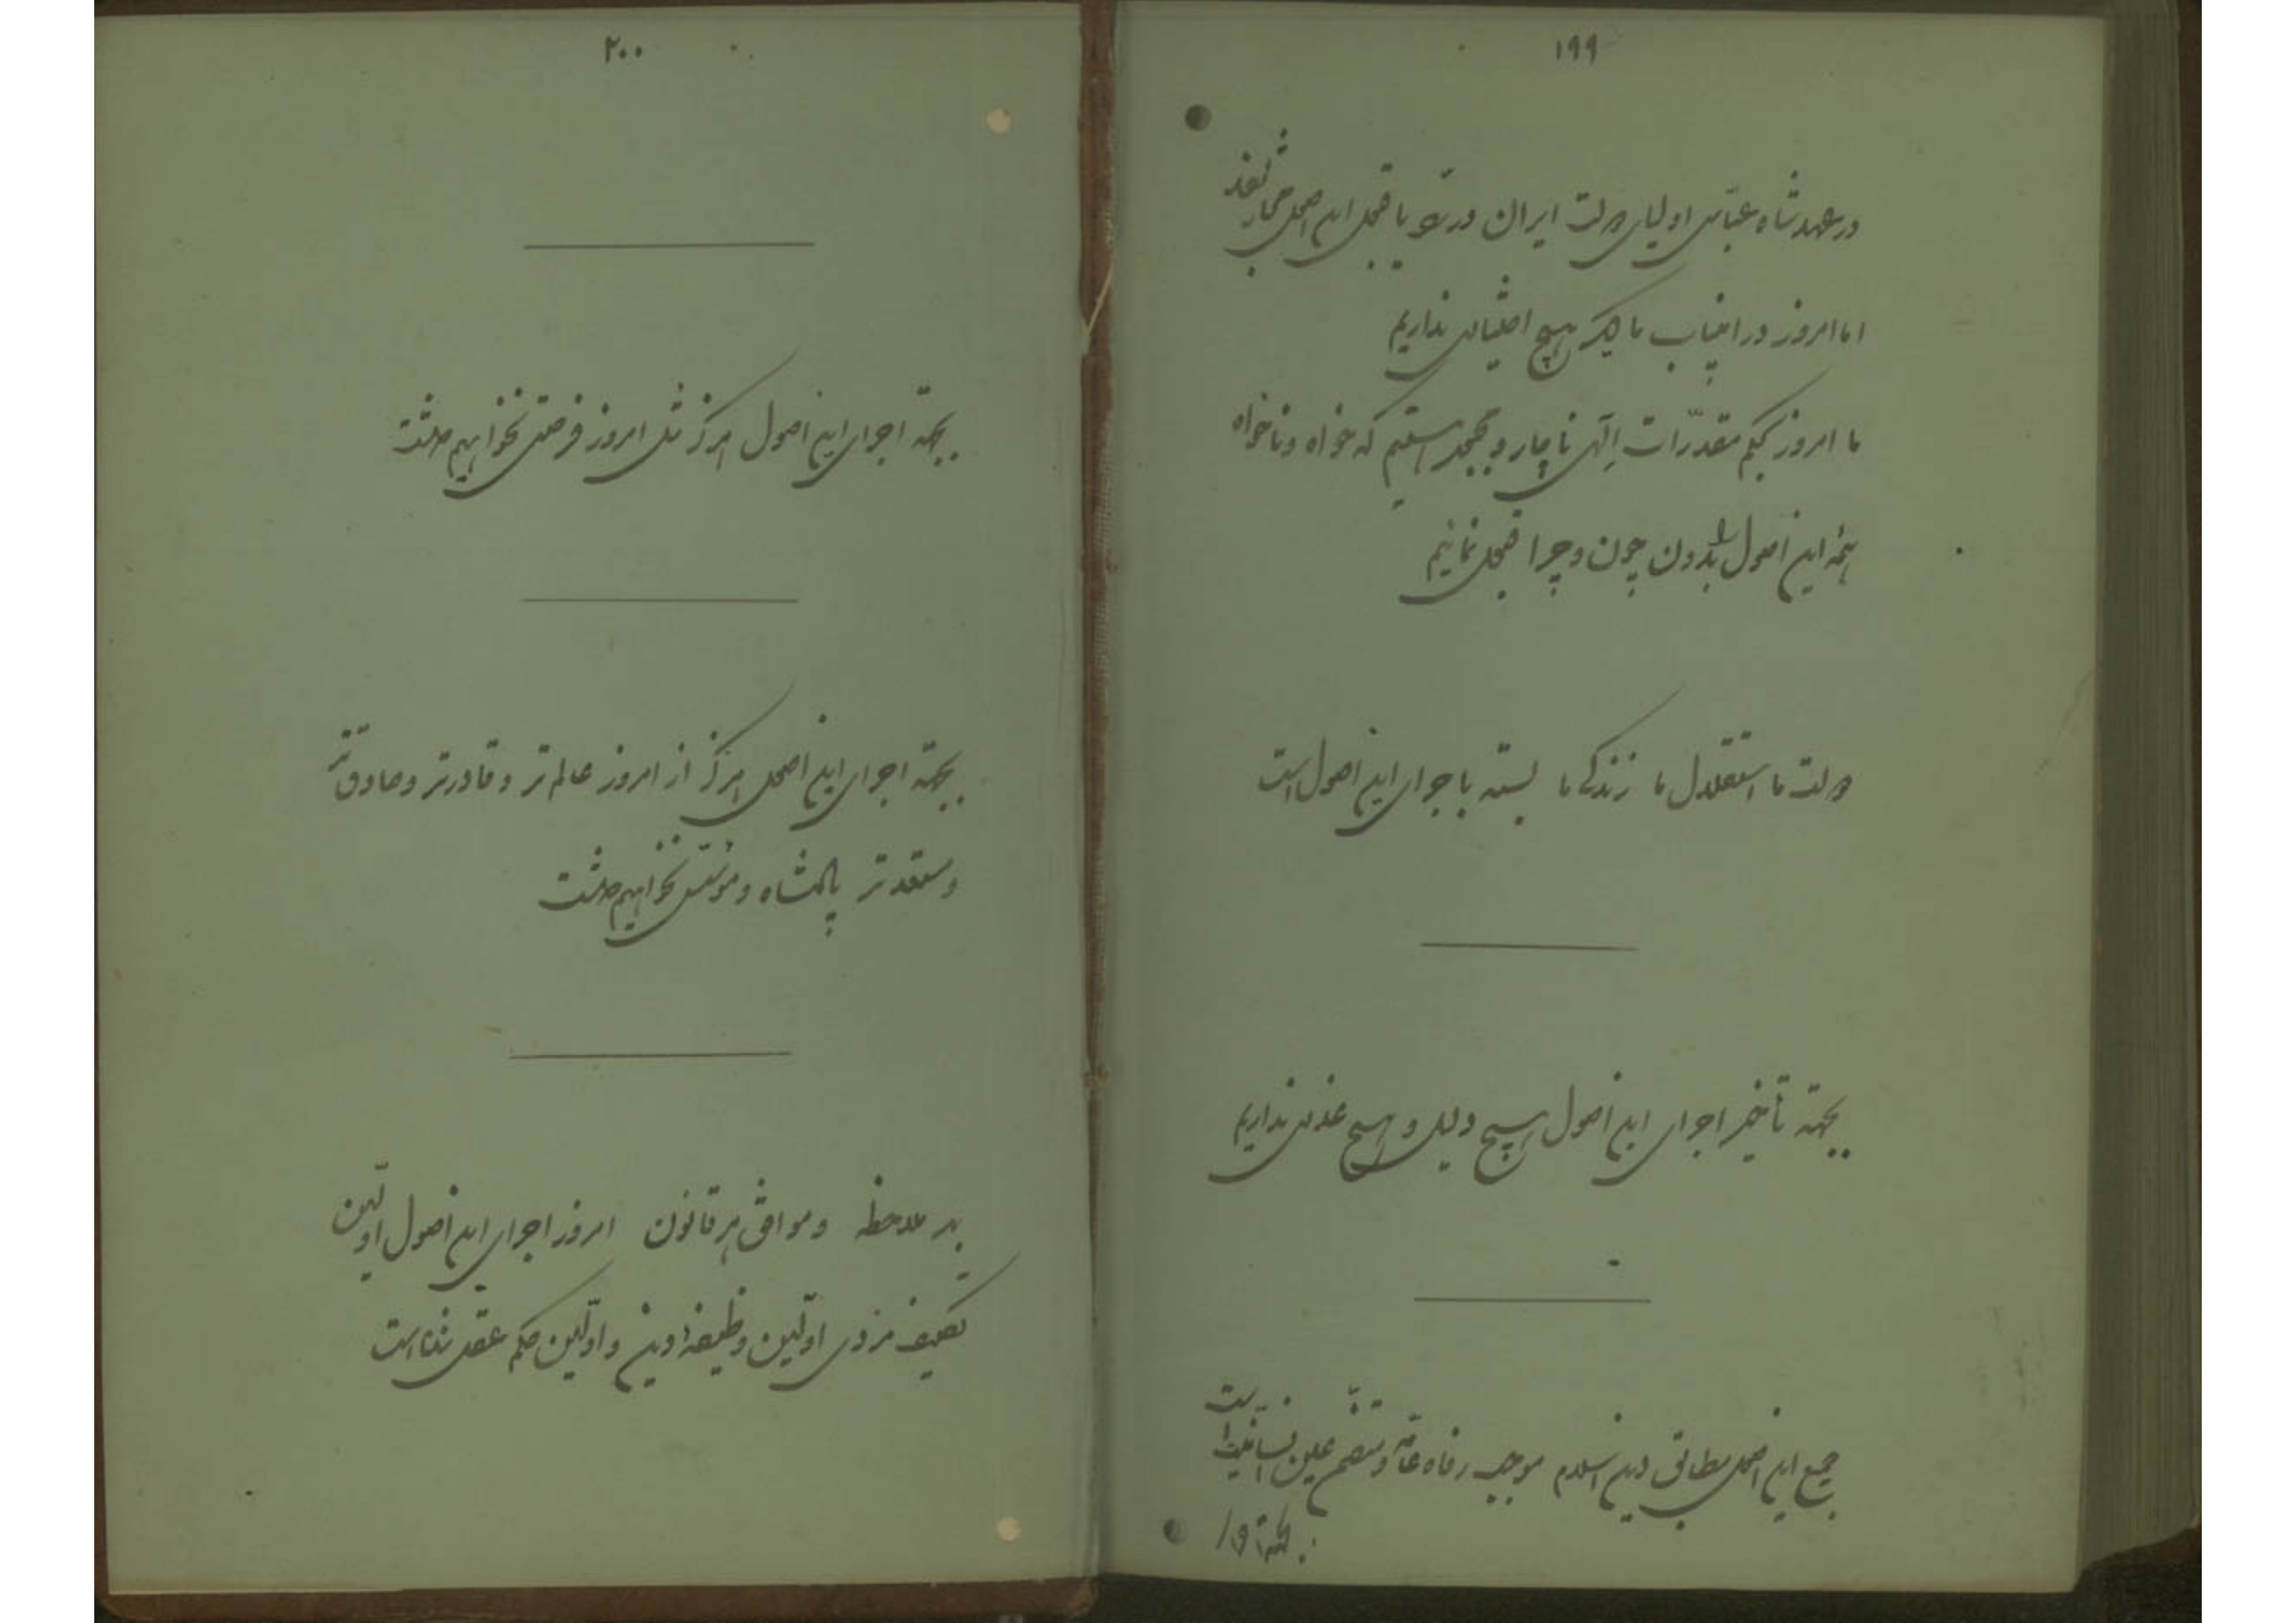 ۱۹۹
در عهد شاه عباس اولیای دولت ایران در رد یا قبول این اصول مختار بودند
اما امروز در این باب ما دیگر هیچ اختیاری نداریم
ما امروز بحکم مقدّرات الهی ناچار و مجبور هستیم که خواه و ناخواه
همه این اصول را بدون چون و چرا قبول نمائیم
دولت ما استقلال ما زندگی ما بسته باجرای این اصول است
بجهته تأخیر اجرای این اصول هیچ دلیل و هیچ عذری نداریم
جمیع این اصول مطابق دین اسلام موجب رفاه عامّه و متضمن عین انسانیت است
بجهته اجرا
۲۰۰
بجهته اجرای این اصول هرگز مثل امروز فرصتی نخواهیم داشت
بجهته اجرای این اصول هرگز از امروز عالم تر و قادرتر و صادق تر
و مستعد تر پادشاه و مؤسسی نخواهیم داشت
بهر ملاحظه و موافق هر قانون امروز اجرای این اصول اولین
تکلیف مردی اولین وظیفهٔ دین و اولین حکم عقل شده است